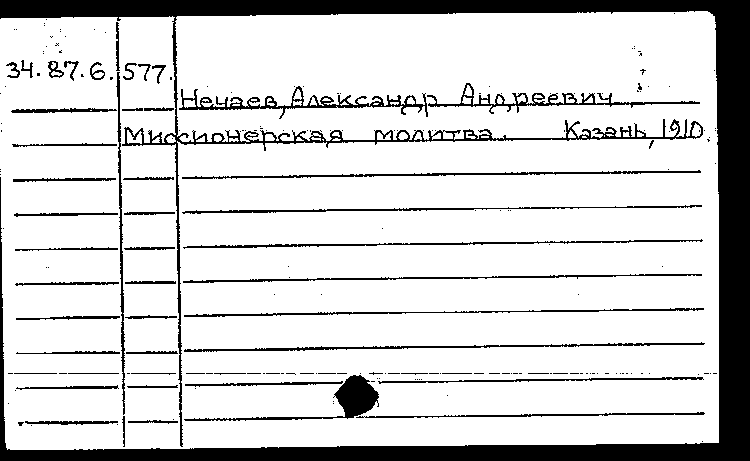 34.87.6. 577.
Нечаев, Александр Андреевич.
Миссионерская молитва. Казань, 1910.